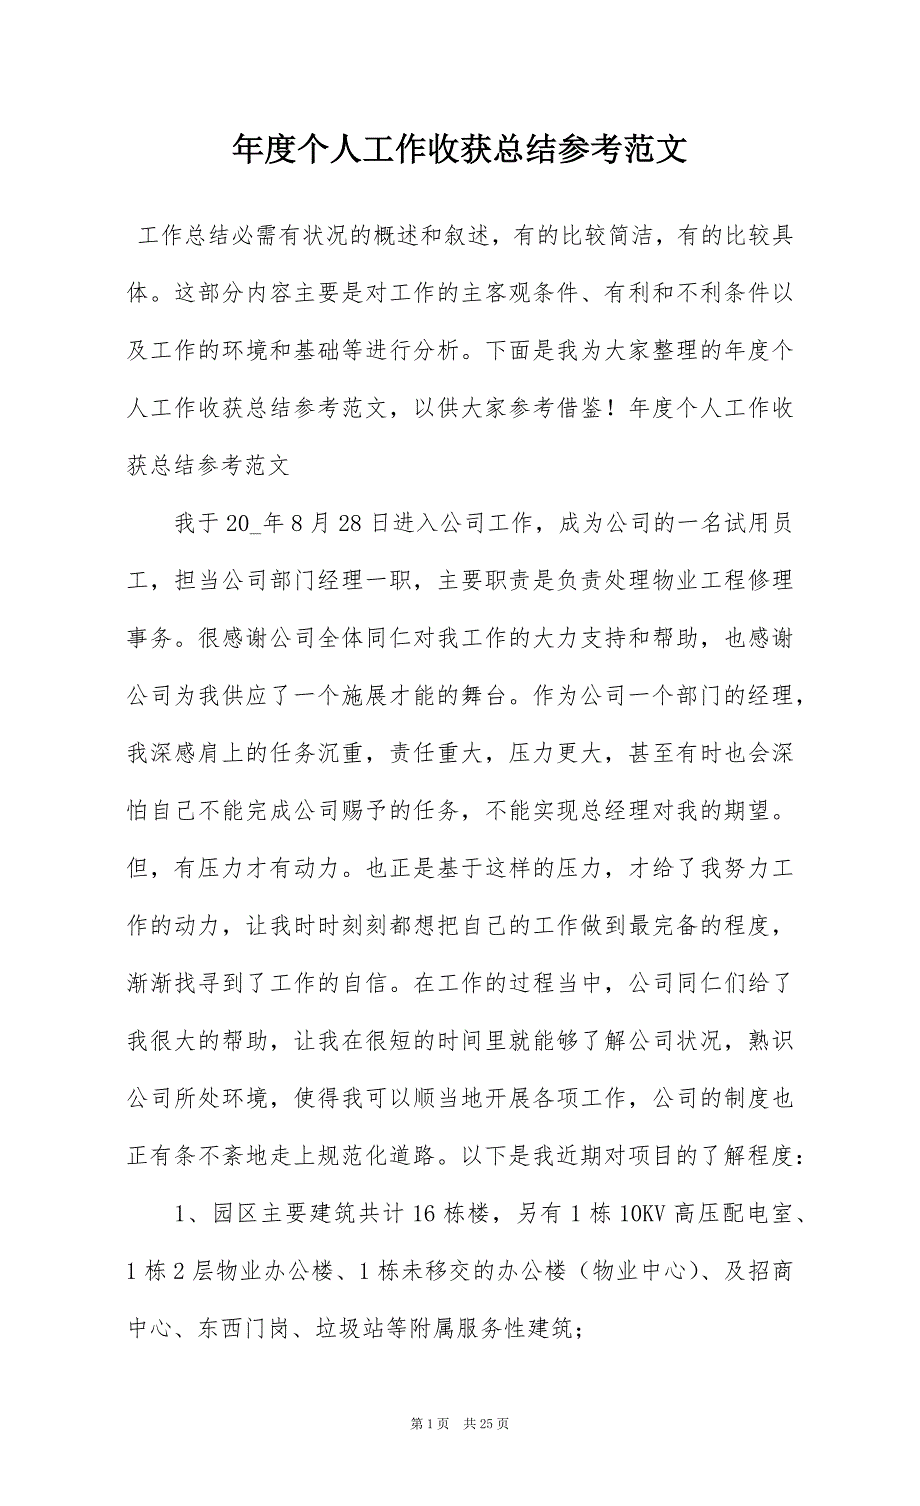 年度个人工作收获总结参考范文
工作总结必需有状况的概述和叙述，有的比较简洁，有的比较具
体。这部分内容主要是对工作的主客观条件、有利和不利条件以
及工作的环境和基础等进行分析。下面是我为大家整理的年度个
人工作收获总结参考范文，以供大家参考借鉴！年度个人工作收
获总结参考范文
我于 20_年 8 月 28 日进入公司工作，成为公司的一名试用员
工，担当公司部门经理一职，主要职责是负责处理物业工程修理
事务。很感谢公司全体同仁对我工作的大力支持和帮助，也感谢
公司为我供应了一个施展才能的舞台。作为公司一个部门的经理，
我深感肩上的任务沉重，责任重大，压力更大，甚至有时也会深
怕自己不能完成公司赐予的任务，不能实现总经理对我的期望。
但，有压力才有动力。也正是基于这样的压力，才给了我努力工
作的动力，让我时时刻刻都想把自己的工作做到最完备的程度，
渐渐找寻到了工作的自信。在工作的过程当中，公司同仁们给了
我很大的帮助，让我在很短的时间里就能够了解公司状况，熟识
公司所处环境，使得我可以顺当地开展各项工作，公司的制度也
正有条不紊地走上规范化道路。以下是我近期对项目的了解程度：
1、园区主要建筑共计 16 栋楼，另有 1 栋 10KV 高压配电室、
1 栋 2 层物业办公楼、1 栋未移交的办公楼（物业中心）、及招商
中心、东西门岗、垃圾站等附属服务性建筑；
第 1 页 共 25 页